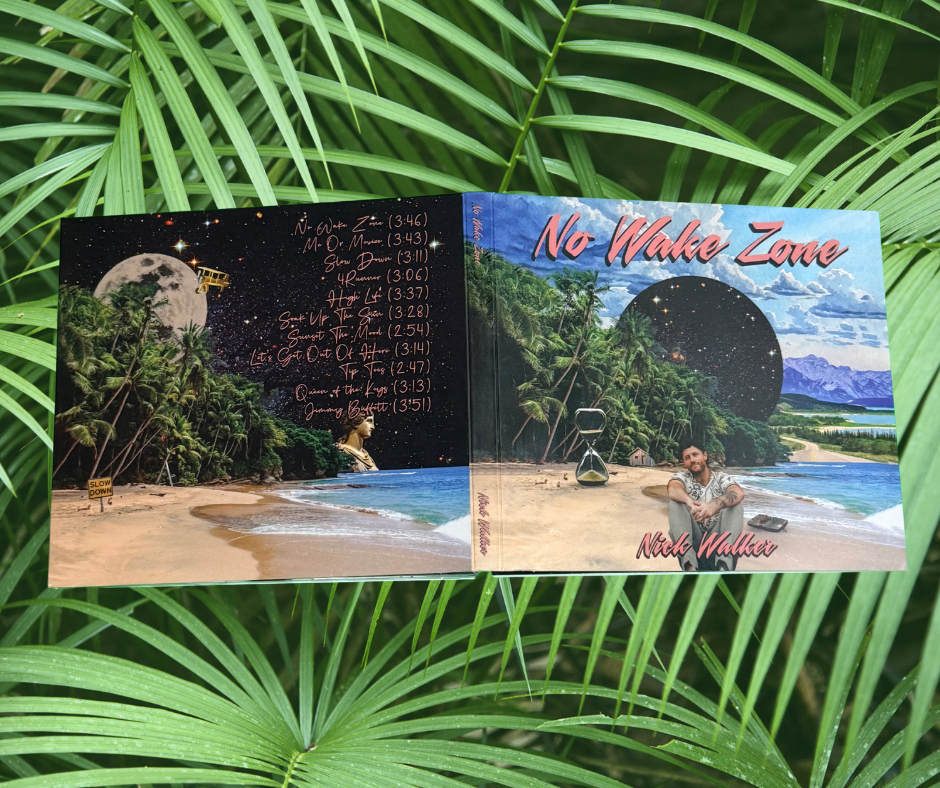 No Wake Zone (3:46)
Mo Or Movin (3:43)
Slow Down (3:11)
4Runner (3:06)
High Life (3:37)
Soak Up The Skin (3:28)
Sunset The Mood (2:54)
Let's Get Out Of Here (3:14)
Tip Toes (2:47)
Queen of the Keys (3:13)
Jimmy Buffett (3:51)
SLOW
DOWN
No Wake Zone
Nick Walker
No Wake Zone
Nick Walker